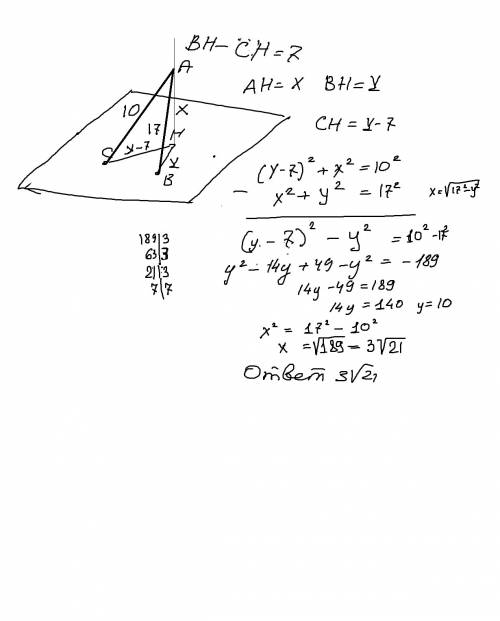 BH - CH = 7
A
AH = X BH = y
10
X
17
CH = y - 7
H
C
y-7
y
B
(y-7)² + x² = 10²
- x² + y² = 17² x = √17²-y²
189|3
63|3
21|3
7|7
(y - 7)² - y² = 10² - 17²
y² - 14y + 49 - y² = - 189
14y - 49 = 189
14y = 140 y = 10
x² = 17² - 10²
x = √189 = 3√21
Ответ 3√21